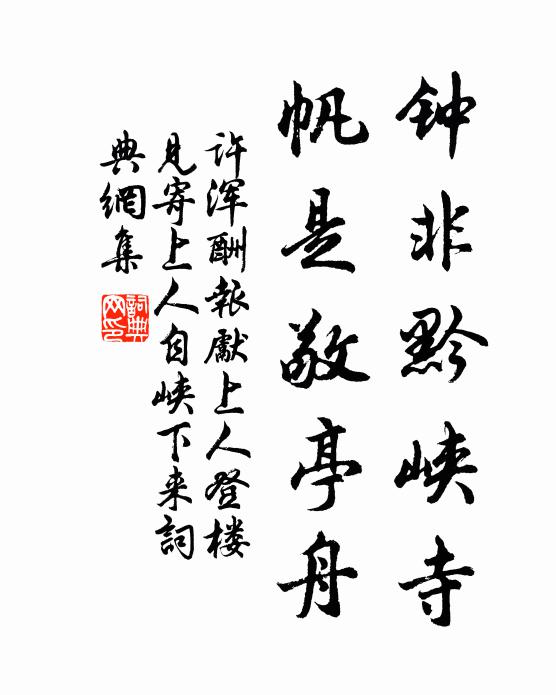 钟非黔峡寺
帆是敬亭舟
许浑酬报献上人登楼
见寄上人自峡下来詞
典網集
詞典网印